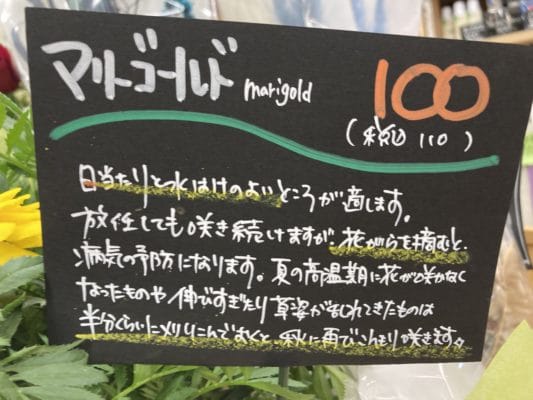 マリーゴールド marigold 100
(税込 110)
日当たりと水はけのよいところが適します。
放任しても咲き続けますが、花がらを摘むと、
病気の予防になります。夏の高温期に花が咲かなく
なったものや伸びすぎたり草姿が乱れてきたものは
半分くらいにメリこんでおくと、秋に再びこんもり咲きます。